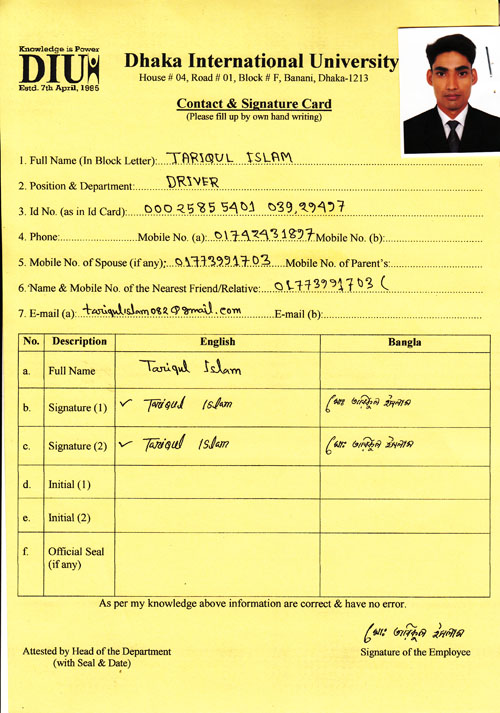 Knowledge is Power
DIU
Estd. 7th April, 1995
Dhaka International University
House # 04, Road # 01, Block # F, Banani, Dhaka-1213
Contact & Signature Card
(Please fill up by own hand writing)
1. Full Name (In Block Letter): TARIQUL ISLAM
2. Position & Department: DRIVER
3. Id No. (as in Id Card): 000 2585 5401 039,29497
4. Phone: Mobile No. (a): 01742431897 Mobile No. (b):
5. Mobile No. of Spouse (if any): 01773991703 Mobile No. of Parent's:
6. Name & Mobile No. of the Nearest Friend/Relative: 01773991703 (
7. E-mail (a): tariqulislam082@gmail.com E-mail (b):
No. Description English Bangla
a. Full Name Tariqul Islam
b. Signature (1) ✓ Tariqul Islam মোঃ তারিকুল ইসলাম
c. Signature (2) ✓ Tariqul Islam মোঃ তারিকুল ইসলাম
d. Initial (1)
e. Initial (2)
f. Official Seal
(if any)
As per my knowledge above information are correct & have no error.
মোঃ তারিকুল ইসলাম
Attested by Head of the Department Signature of the Employee
(with Seal & Date)